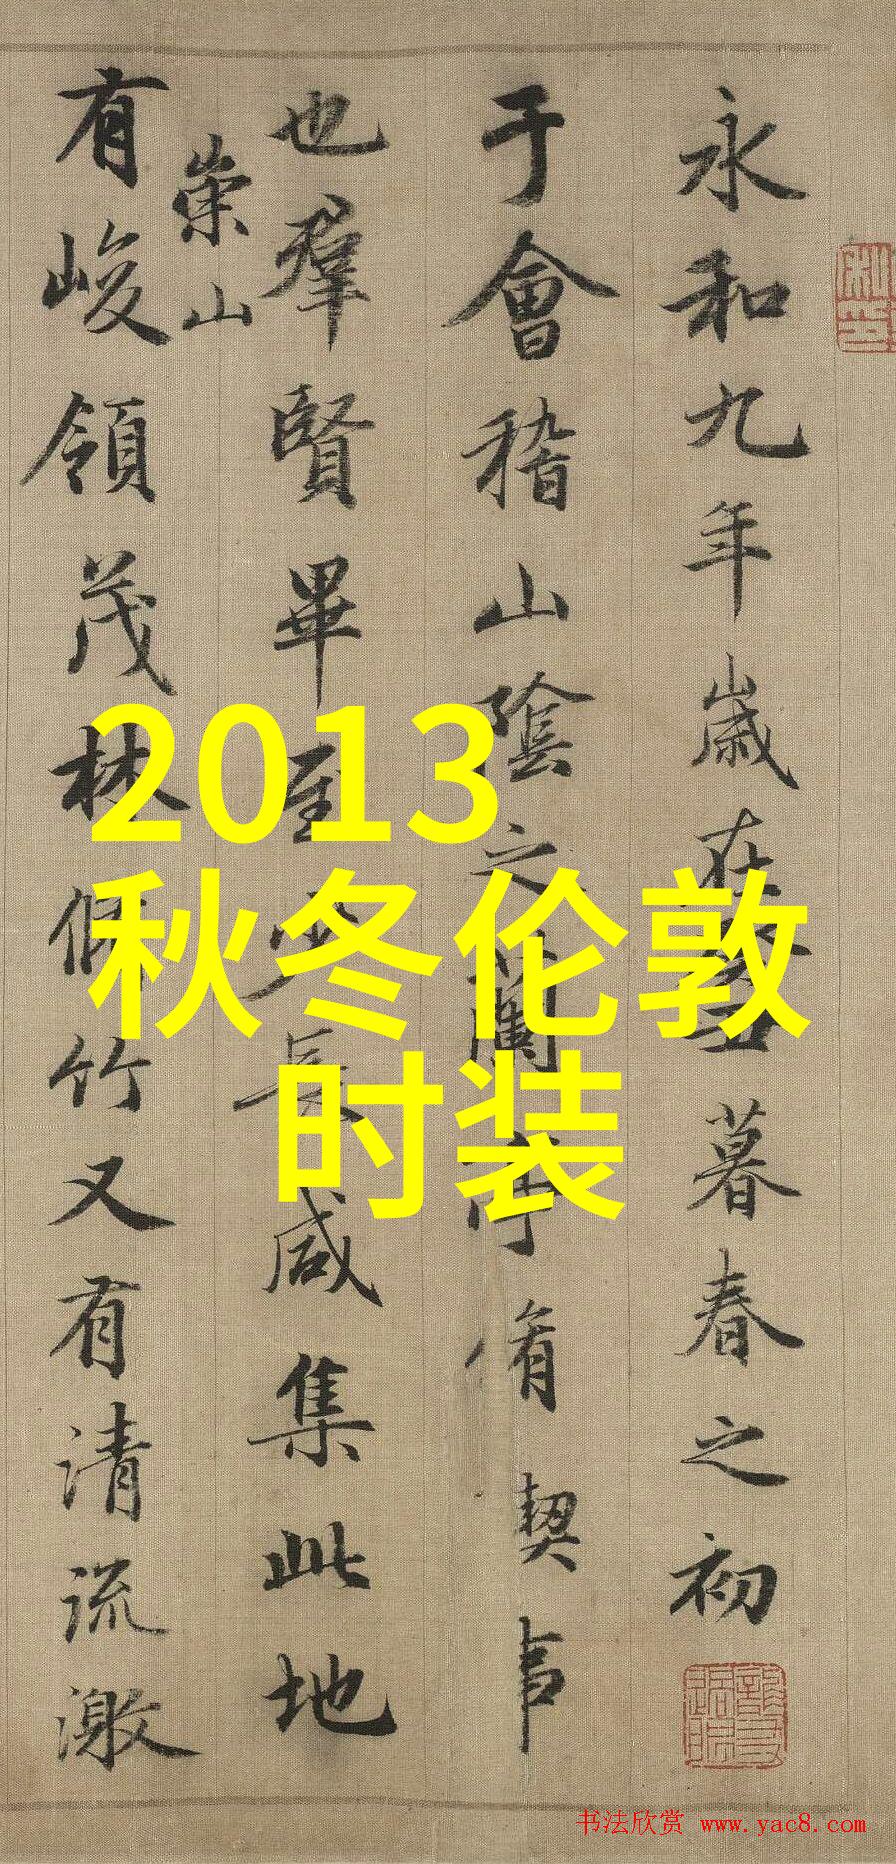 永和九年歲在癸丑暮春之初
于會稽山陰之蘭亭脩稧事
也羣賢畢至少長咸集此地
崇山
有峻領茂林脩竹又有清流激
2013
秋冬伦敦
时装
书法欣赏 www.yac8.com